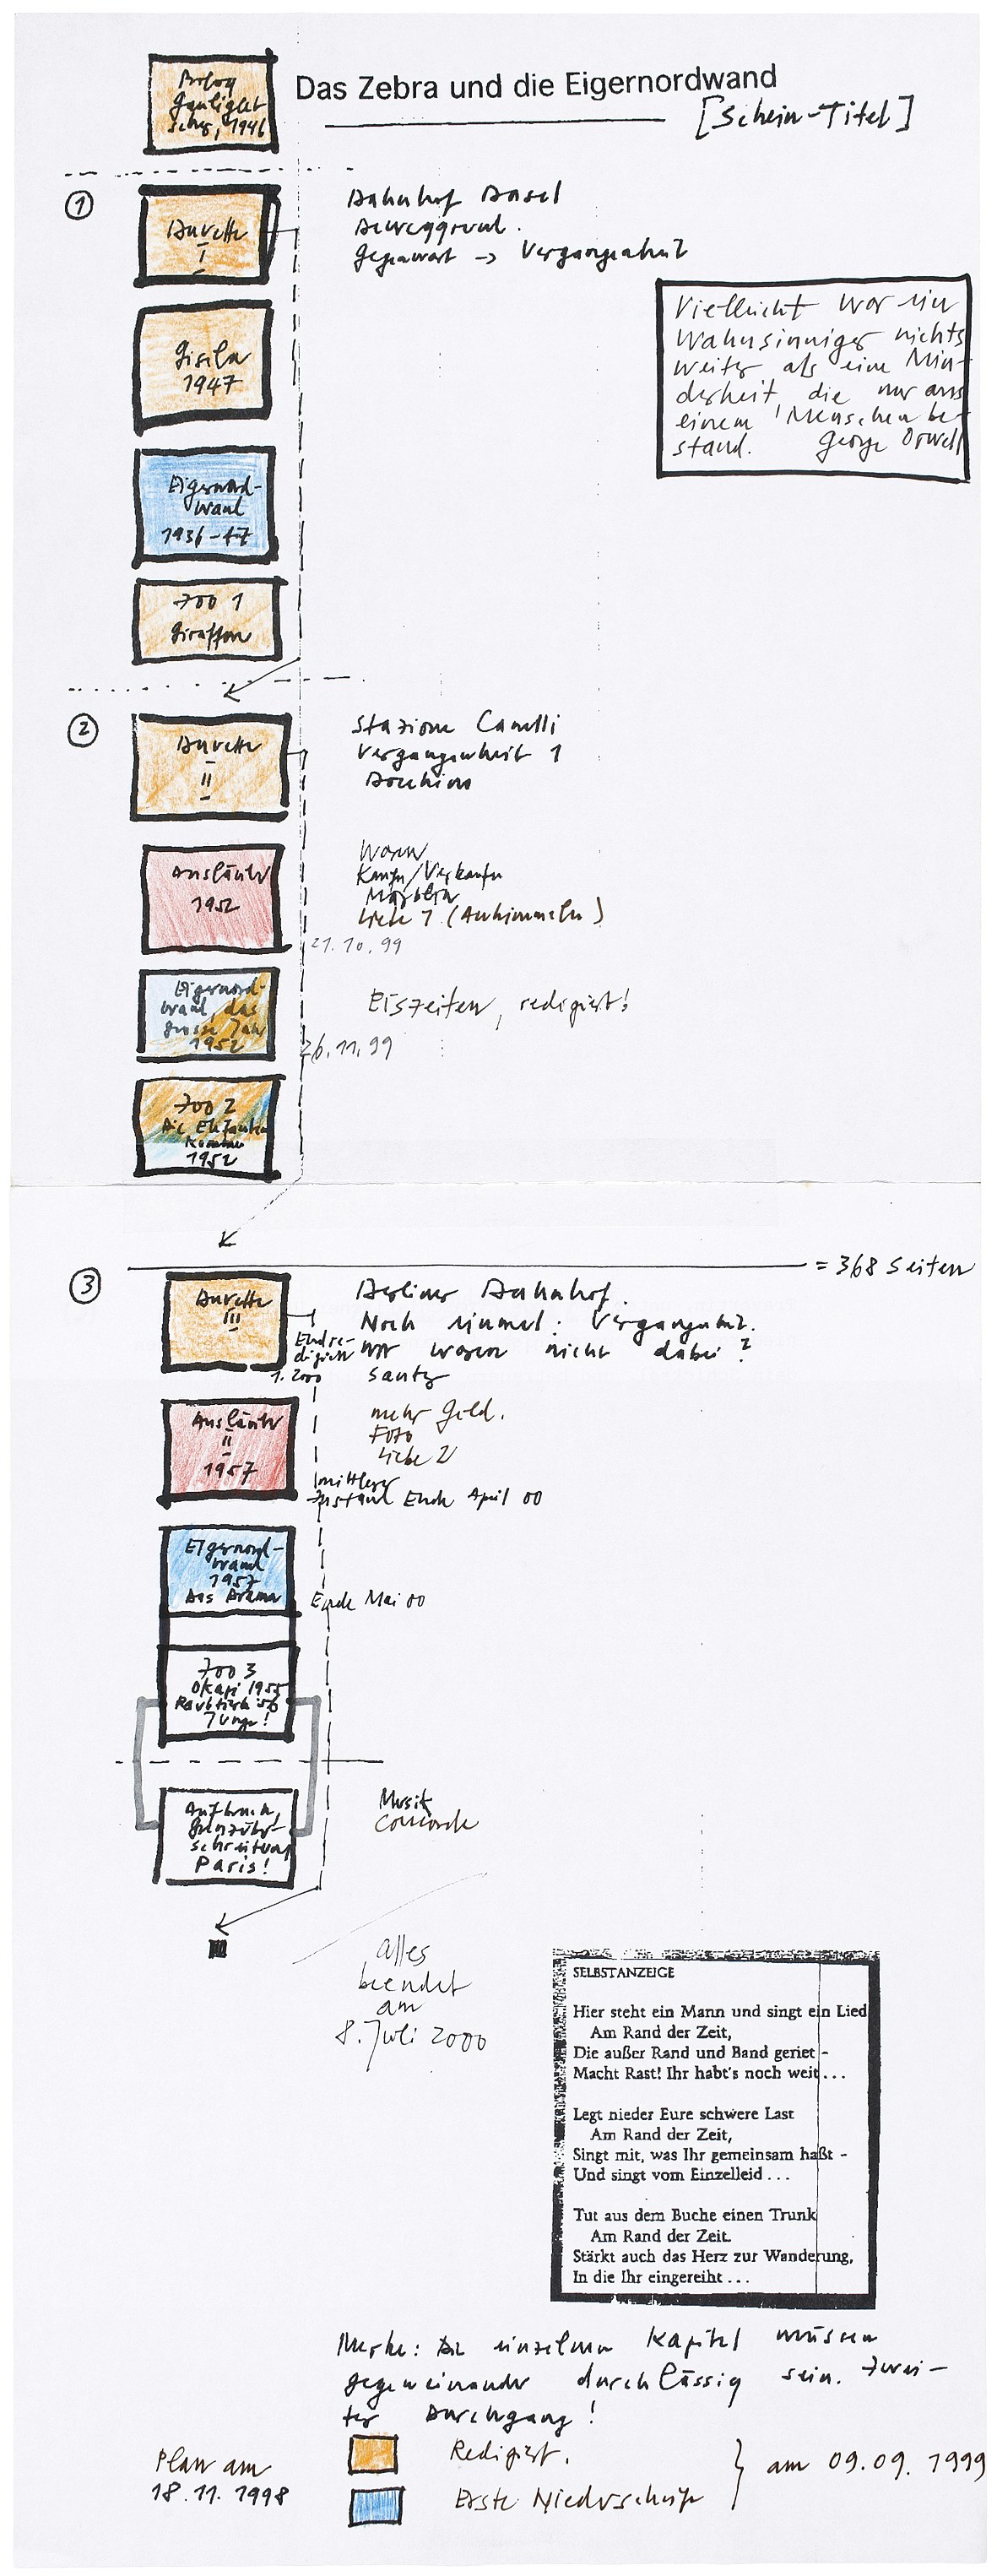 Prolog
1946
Das Zebra und die Eigernordwand
[Schein-Titel]
①
Buvette
I
Bahnhof Basel
Beweggrund.
Gegenwart -> Vergangenheit
Gisela
1947
Vielleicht war ein
Wahnsinniger nichts
weiter als eine Min-
derheit, die nur aus
einem Menschen be-
stand. George Orwell
Eigernord-
wand
1936-47
Zoo 1
Giraffen
②
Buvette
II
Stazione Canelli
Vergangenheit 1
Ausländer
1952
Waren
Kaufen/Verkaufen
Liebe 1 (Anhimmeln)
21.10.99
Eigernord-
wand, das
grosse Jahr
1952
Eiszeiten, redigiert!
26.11.99
Zoo 2
Die Elefanten
kommen
1952
= 368 Seiten
③
Buvette
III
Berliner Bahnhof.
Noch einmal: Vergangenheit.
Wir waren nicht dabei?
Endre-
digiert
1. 2000
Ausländer
II
1957
mehr Geld.
Foto
Liebe 2
mittlerer
Zustand Ende April 00
Eigernord-
wand
1957
Das Drama
Ende Mai 00
Zoo 3
Okapi 1955
Raubtiere 56
Junge!
Aufbruch,
Grenzüber-
schreitung
Paris!
Musik
Concorde
alles
beendet
am
8. Juli 2000
SELBSTANZEIGE
Hier steht ein Mann und singt ein Lied
Am Rand der Zeit,
Die außer Rand und Band geriet -
Macht Rast! Ihr habt's noch weit...
Legt nieder Eure schwere Last
Am Rand der Zeit,
Singt mit, was Ihr gemeinsam haßt -
Und singt vom Einzelleid...
Tut aus dem Buche einen Trunk
Am Rand der Zeit.
Stärkt auch das Herz zur Wanderung,
In die Ihr eingereiht...
Merke: Die einzelnen Kapitel müssen
gegeneinander durchlässig sein. Zwei-
ter Durchgang!
Plan am
18.11.1998
Redigiert.
Erste Niederschrift
} am 09.09.1999